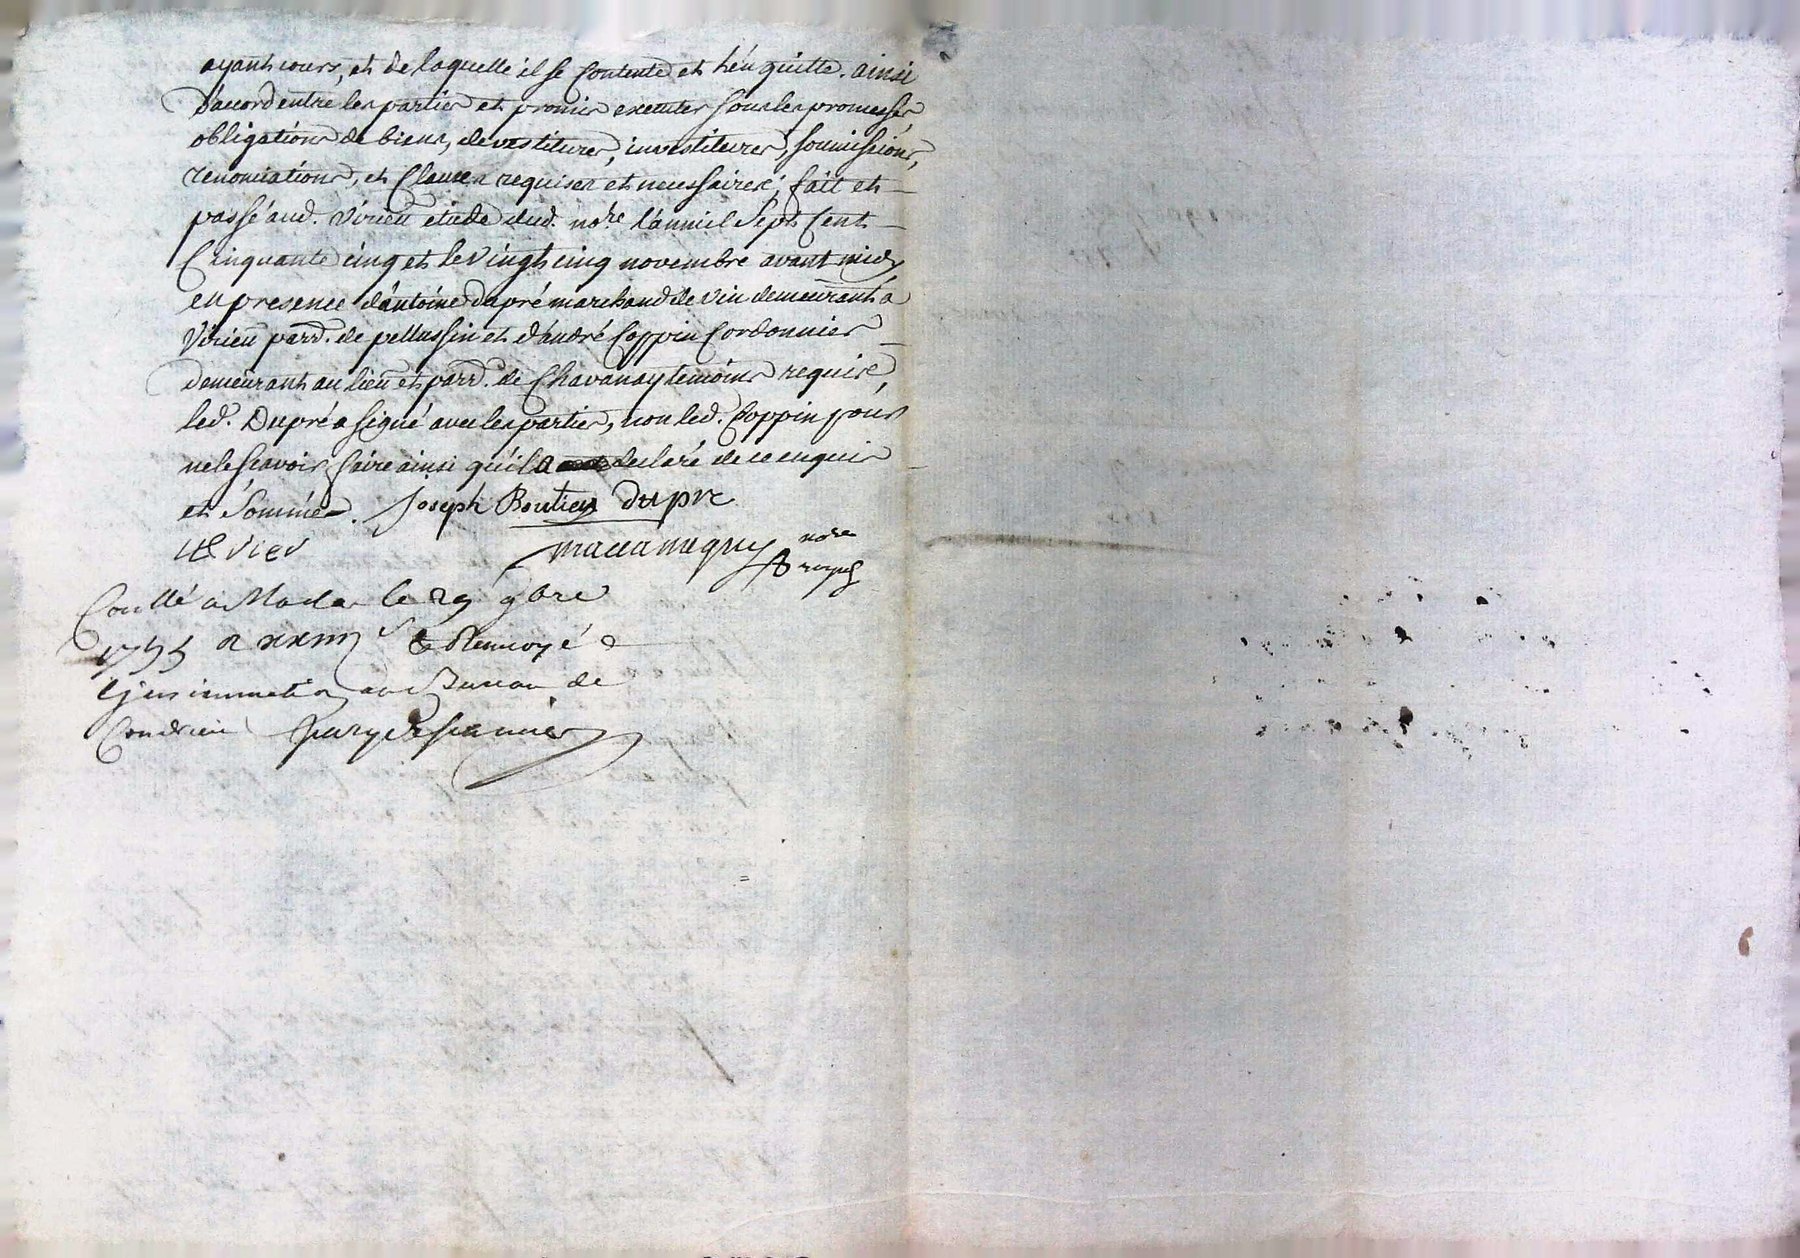 ayant cours, et de laquelle il se Contente et l'en quitte. ainsi
d'accord entre les parties et promis executer sous les promesses,
obligations de biens, devestitures, investitures, soumissions,
renonciations, et Clauses requises et necessaires; fait et
passé aud. Virieu étude dud. nore. l'an mil Sept Cent
Cinquante cinq et le Vingt cinq novembre avant midy,
en presence d'antoine dupré marchand de vin demeurant a
Virieu parr. de pellussin et d'andré Coppin Cordonnier
demeurant au lieu et parr. de Chavanay temoins requis,
led. Dupré a signé avec les parties, non led. Coppin pour
ne le scavoir faire ainsi qu'il a declaré de ce enquis
et sommé. Joseph Boutier dupre
nore
royal
Con llé a le 29 9bre
1755 & Renvoyé a
l'insinuation au Bureau de
Condrieu